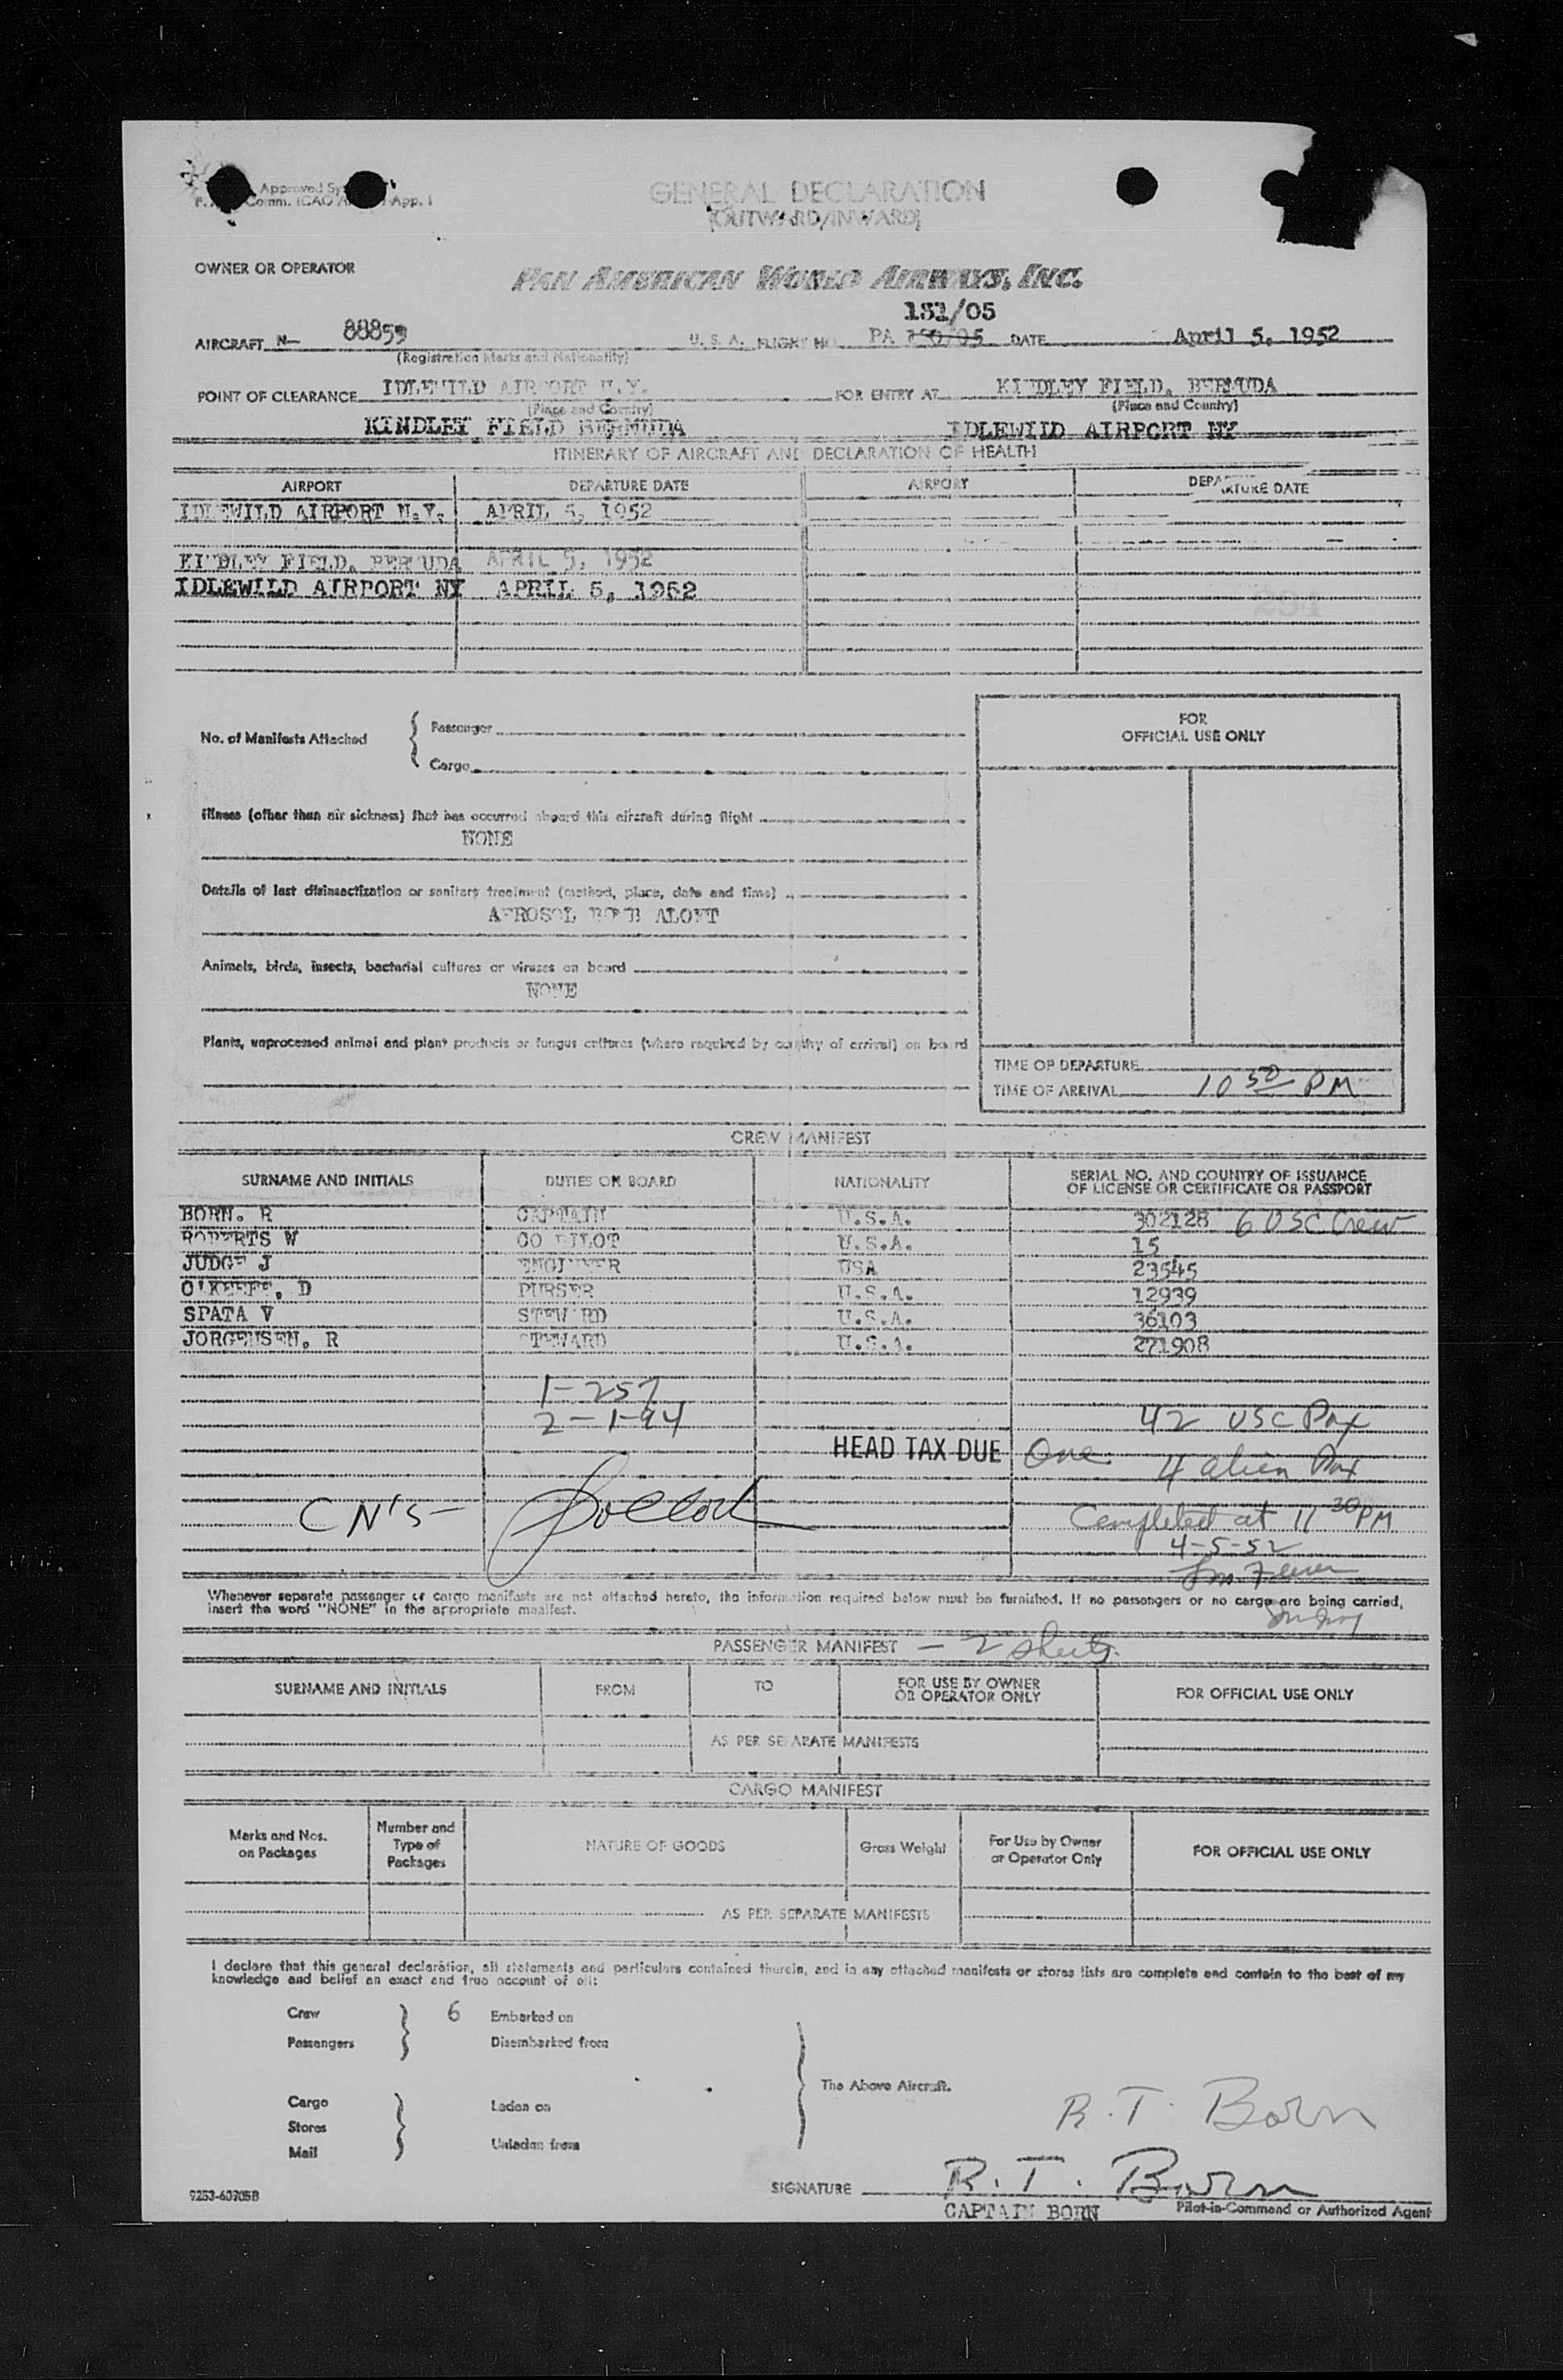 GENERAL DECLARATION
(OUTWARD/INWARD)
OWNER OR OPERATOR
PAN AMERICAN WORLD AIRWAYS, INC.
181/05
AIRCRAFT N- 88859 U. S. A. FLIGHT NO. PA 150/05 DATE April 5, 1952
(Registration Marks and Nationality)
POINT OF CLEARANCE IDLEWILD AIRPORT N.Y. FOR ENTRY AT KINDLEY FIELD, BERMUDA
(Place and Country) (Place and Country)
KINDLEY FIELD BERMUDA IDLEWIID AIRPORT NY
ITINERARY OF AIRCRAFT AND DECLARATION OF HEALTH
AIRPORT DEPARTURE DATE AIRPORT DEPARTURE DATE
IDLEWILD AIRPORT N.Y. APRIL 5, 1952
KINDLEY FIELD, BERMUDA APRIL 5, 1952
IDLEWILD AIRPORT NY APRIL 5, 1952
FOR
OFFICIAL USE ONLY
No. of Manifests Attached { Passenger
Cargo
Illness (other than air sickness) that has occurred aboard this aircraft during flight
NONE
Details of last disinsectization or sanitary treatment (method, place, date and time)
AEROSOL BOMB ALOFT
Animals, birds, insects, bacterial cultures or viruses on board
NONE
Plants, unprocessed animal and plant products or fungus cultures (where required by country of arrival) on board
TIME OF DEPARTURE
TIME OF ARRIVAL 10 50 PM
CREW MANIFEST
SURNAME AND INITIALS DUTIES ON BOARD NATIONALITY SERIAL NO. AND COUNTRY OF ISSUANCE
OF LICENSE OR CERTIFICATE OR PASSPORT
BORN. R CAPTAIN U.S.A. 302128 6 USC Crew
ROBERTS W CO PILOT U.S.A. 15
JUDGE J ENGINEER USA 23545
O'KEEFE, D PURSER U.S.A. 12939
SPATA V STEWARD U.S.A. 36103
JORGENSEN, R STEWARD U.S.A. 271908
1-257
2-1-94 42 USC Pax
HEAD TAX DUE One 4 alien Pax
CN'S- Completed at 11 30 PM
4-5-52
Whenever separate passenger or cargo manifests are not attached hereto, the information required below must be furnished. If no passengers or no cargo are being carried,
insert the word "NONE" in the appropriate manifest.
PASSENGER MANIFEST - 2 sheets.
SURNAME AND INITIALS FROM TO FOR USE BY OWNER
OR OPERATOR ONLY FOR OFFICIAL USE ONLY
AS PER SEPARATE MANIFESTS
CARGO MANIFEST
Marks and Nos.
on Packages Number and
Type of
Packages NATURE OF GOODS Gross Weight For Use by Owner
or Operator Only FOR OFFICIAL USE ONLY
AS PER SEPARATE MANIFESTS
I declare that this general declaration, all statements and particulars contained therein, and in any attached manifests or stores lists are complete and contain to the best of my
knowledge and belief an exact and true account of all:
Crew 6 Embarked on
Passengers Disembarked from
The Above Aircraft.
Cargo Laden on
Stores
Mail Unladen from
R. T. Born
SIGNATURE R. T. Born
CAPTAIN BORN Pilot-in-Command or Authorized Agent
9253-63705B